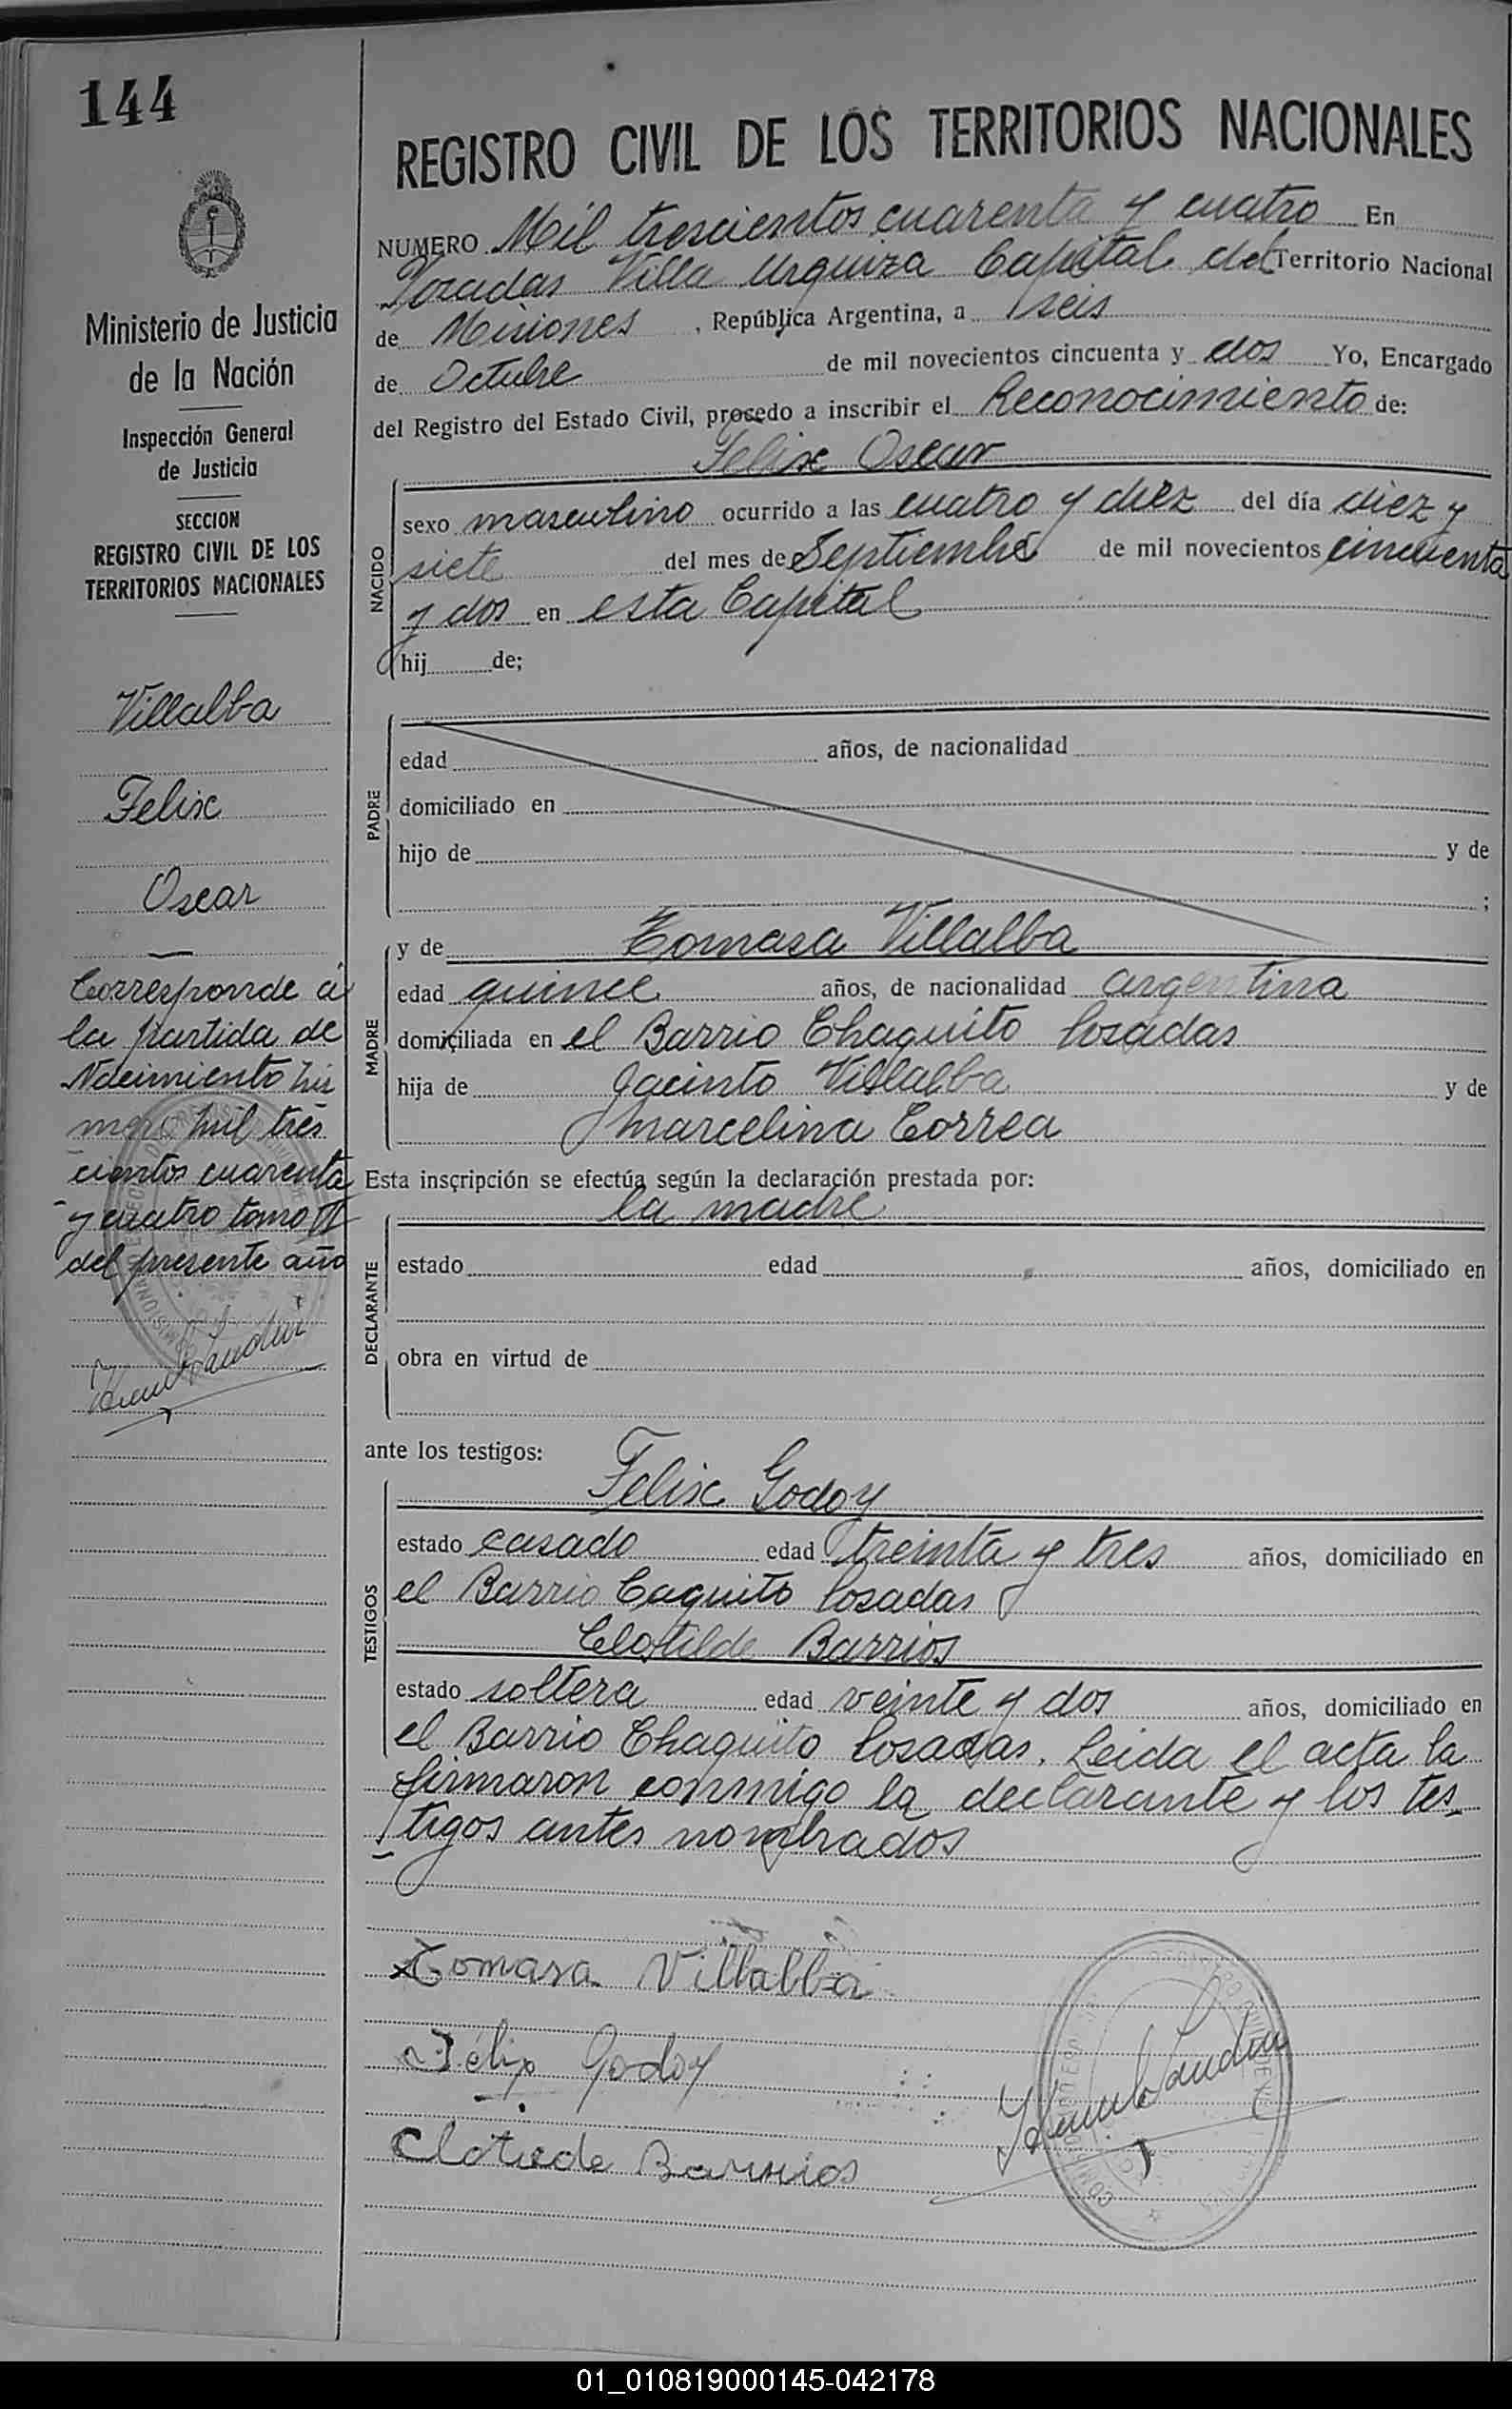 144
REGISTRO CIVIL DE LOS TERRITORIOS NACIONALES
Ministerio de Justicia
de la Nación
Inspección General
de Justicia
SECCION
REGISTRO CIVIL DE LOS
TERRITORIOS NACIONALES
Villalba
Felix
Oscar
Corresponde a
la partida de
Nacimiento nú
mero mil tres
cientos cuarenta
y cuatro tomo II
del presente año
NUMERO Mil trescientos cuarenta y cuatro En
Posadas Villa Urquiza Capital del Territorio Nacional
de Misiones , República Argentina, a seis
de Octubre de mil novecientos cincuenta y dos Yo, Encargado
del Registro del Estado Civil, procedo a inscribir el Reconocimiento de:
Felix Oscar
NACIDO
sexo masculino ocurrido a las cuatro y diez del día diez y
siete del mes de Septiembre de mil novecientos cincuenta
y dos en esta Capital
hij de;
PADRE
edad años, de nacionalidad
domiciliado en
hijo de y de
;
MADRE
y de Tomasa Villalba
edad quince años, de nacionalidad argentina
domiciliada en el Barrio Chaquito Posadas
hija de Jacinto Villalba y de
Marcelina Correa
Esta inscripción se efectúa según la declaración prestada por:
la madre
DECLARANTE
estado edad años, domiciliado en
obra en virtud de
ante los testigos:
TESTIGOS
Felix Godoy
estado casado edad treinta y tres años, domiciliado en
el Barrio Caquito Posadas
Clotilde Barrios
estado soltera edad veinte y dos años, domiciliado en
el Barrio Chaquito Posadas. Leida el acta la
firmaron conmigo la declarante y los tes
tigos antes nombrados
Tomasa Villalba
Félix Godoy
Clotilde Barrios
01_010819000145-042178